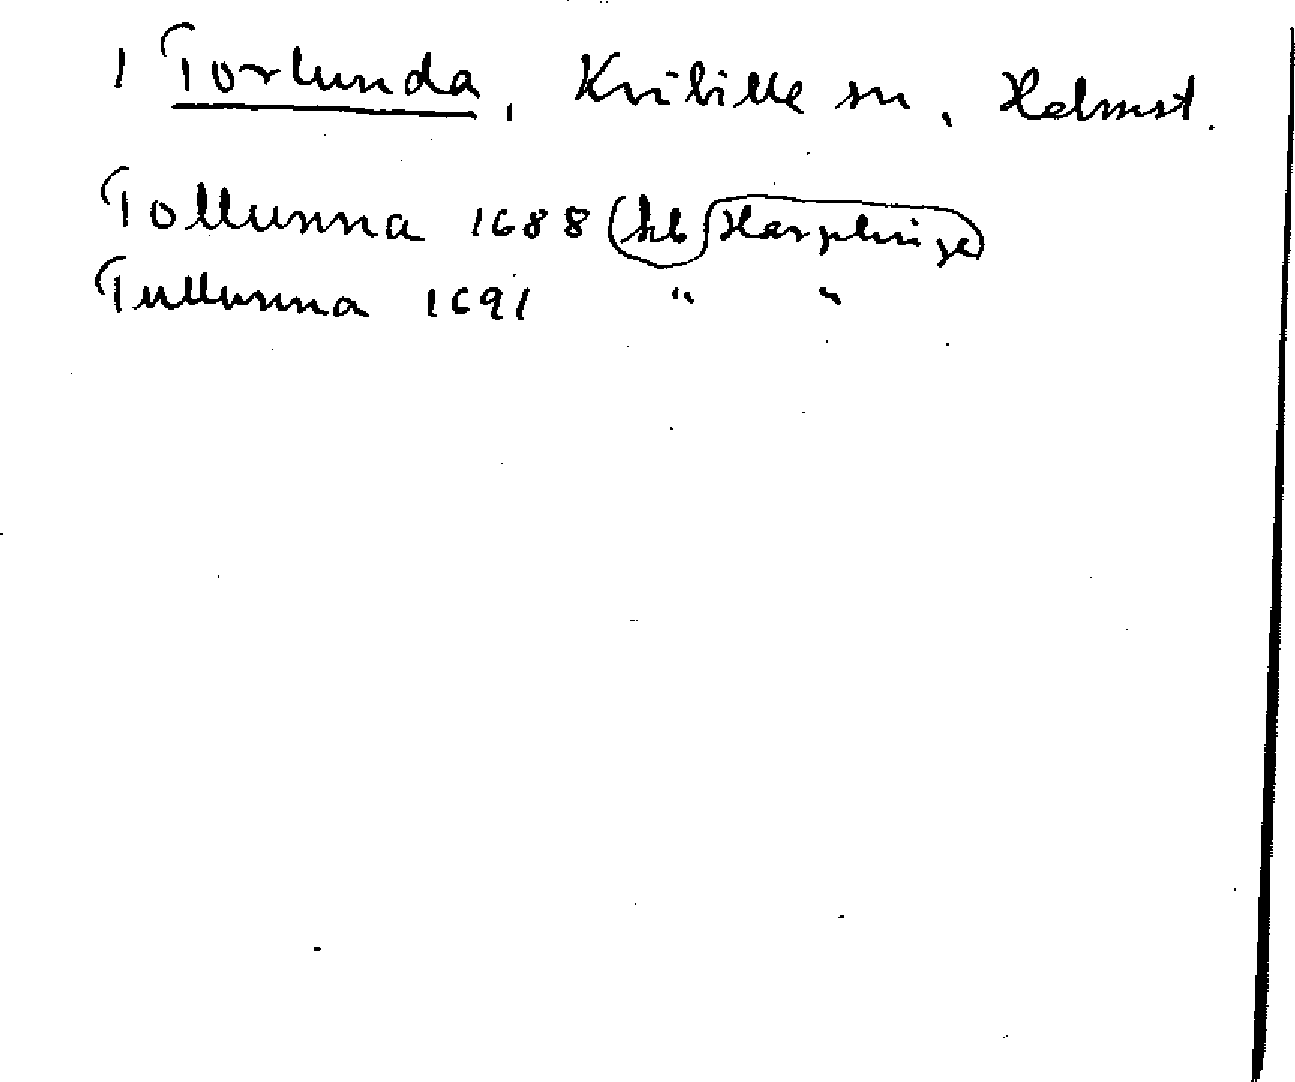 1 Torlunda, Kvibille sn, Halmst.
Tollunna 1688 (kb Harplinge)
Tullunna 1691 " "